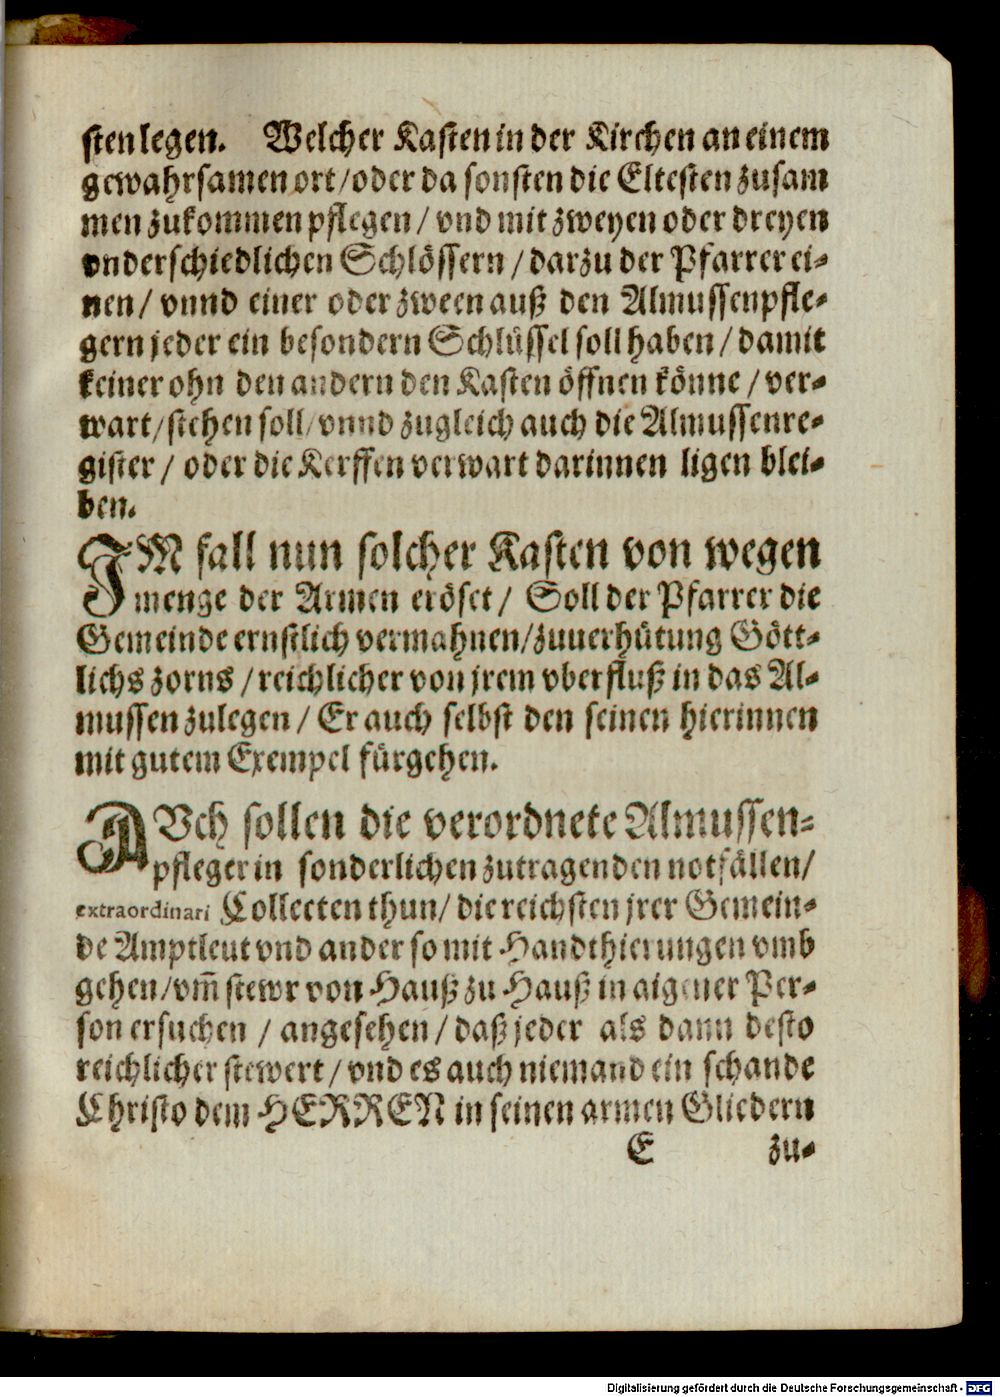 sten legen.  Welcher Kasten in der Kirchen an einem
gewahrsamen ort / oder da sonsten die Eltesten zusam
men zukommen pflegen / vnd mit zweyen oder dreyen
vnderschiedlichen Schlössern / darzu der Pfarrer ei-
nen / vnnd einer oder zween auß den Almussenpfle-
gern jeder ein besondern Schlüssel soll haben / damit
keiner ohn den andern den Kasten öffnen könne / ver-
wart / stehen soll / vnnd zugleich auch die Almussenre-
gister / oder die Kerffen verwart darinnen ligen blei-
ben.
IM fall nun solcher Kasten von wegen
menge der Armen eröset / Soll der Pfarrer die
Gemeinde ernstlich vermahnen / zuuerhütung Gött-
lichs zorns / reichlicher von jrem vberfluß in das Al-
mussen zulegen / Er auch selbst den seinen hierinnen
mit gutem Exempel fürgehen.
AVch sollen die verordnete Almussen-
pfleger in sonderlichen zutragenden notfällen /
extraordinari Collecten thun / die reichsten jrer Gemein-
de Amptleut vnd ander so mit Handthierungen vmb
gehen / vm̃ stewr von Hauß zu Hauß in aigener Per-
son ersuchen / angesehen / daß jeder als dann desto
reichlicher stewert / vnd es auch niemand ein schande
Christo dem HERREN in seinen armen Gliedern
E zu-
Digitalisierung gefördert durch die Deutsche Forschungsgemeinschaft - DFG